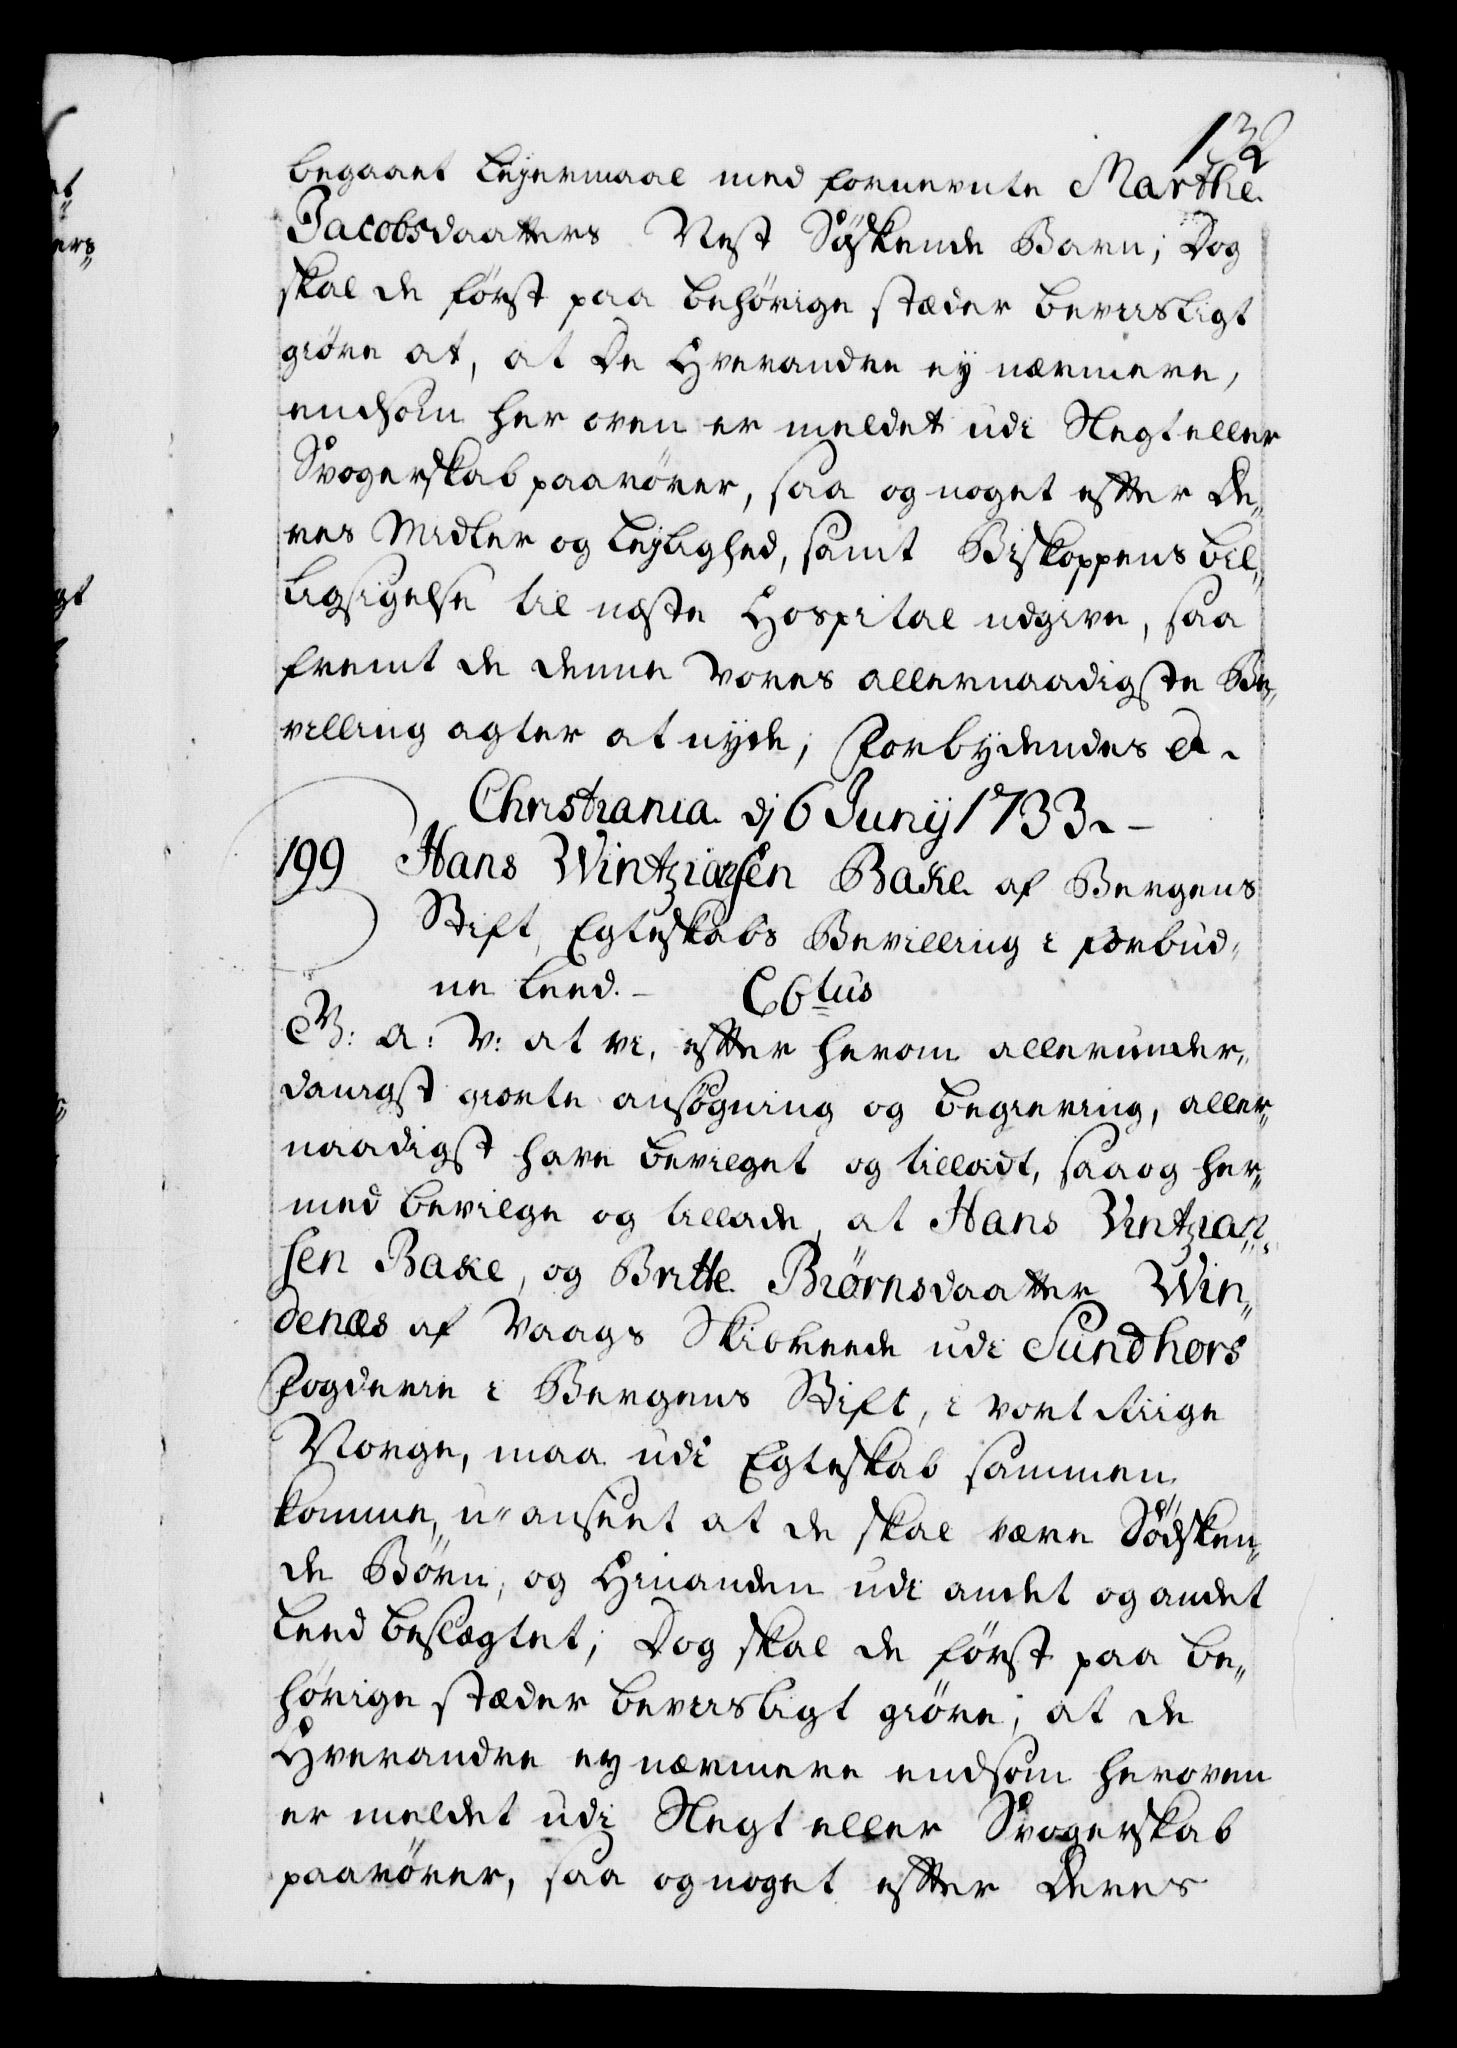 132
begaaet Lejermaal med fornevnte Marthe
Jacobsdaatters Nest Søskende Barn; Dog
skal de først paa behørige stæder beviisligt
giøre at, at De Hverandre ey nærmere,
endsom her oven er meldet udi Slegt eller
Svogerskab paarører, saa og noget efter De„
res Midler og Lejlighed, samt Biskoppens bil„
ligsigelse til næste Hospital udgive, saa
fremt de denne Vores allernaadigste Be„
villing agter at nyde; Forbydendes et.
Christiania dj 6 Junij 1733.
199 Hans Wintziansen Bake af Bergens
Stift, Egteskabs Bevilling i forbud„
ne Leed. – C 6tus
G: A: V: at vi, efter herom allerunder„
danigst giorte ansøgning og begiering, aller„
naadigst have bevilget og tilladt, saa og her„
med bevilge og tillade, at Hans Vintzian„
sen Bake, og Britte Biørnsdaatter Win„
denæs af Vaags Skibreede udi Sundhors
Fogderie i Bergens Stift, i vort Riige
Norge, maa udi Egteskab sammen
komme, u-anseet at de skal være Sødsken„
de Børn, og Hinanden udi andet og andet
Leed beslægtet; Dog skal de først paa be„
hørige stæder beviisligt giøre, at de
Hverandre ey nærmere endsom heroven
er meldet udi Slegt eller Svogerskab
paarører, saa og noget efter Deres